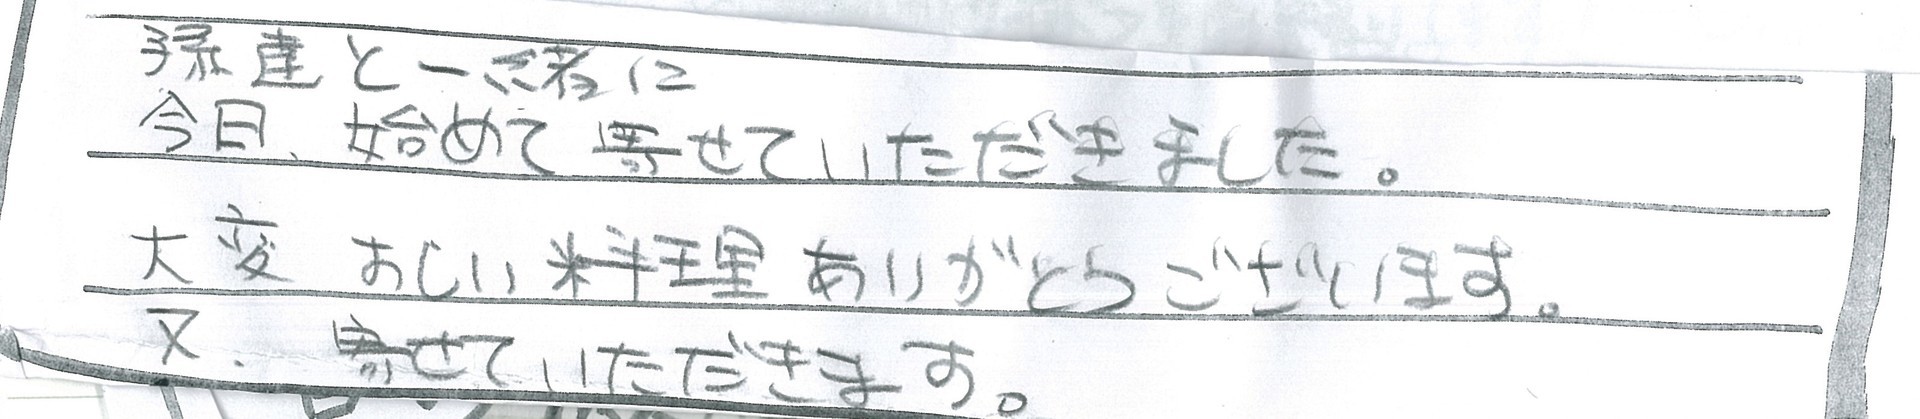 孫達と一緒に
今日、始めて寄せていただきました。
大変 おしい料理ありがとうございます。
又、寄せていただきます。